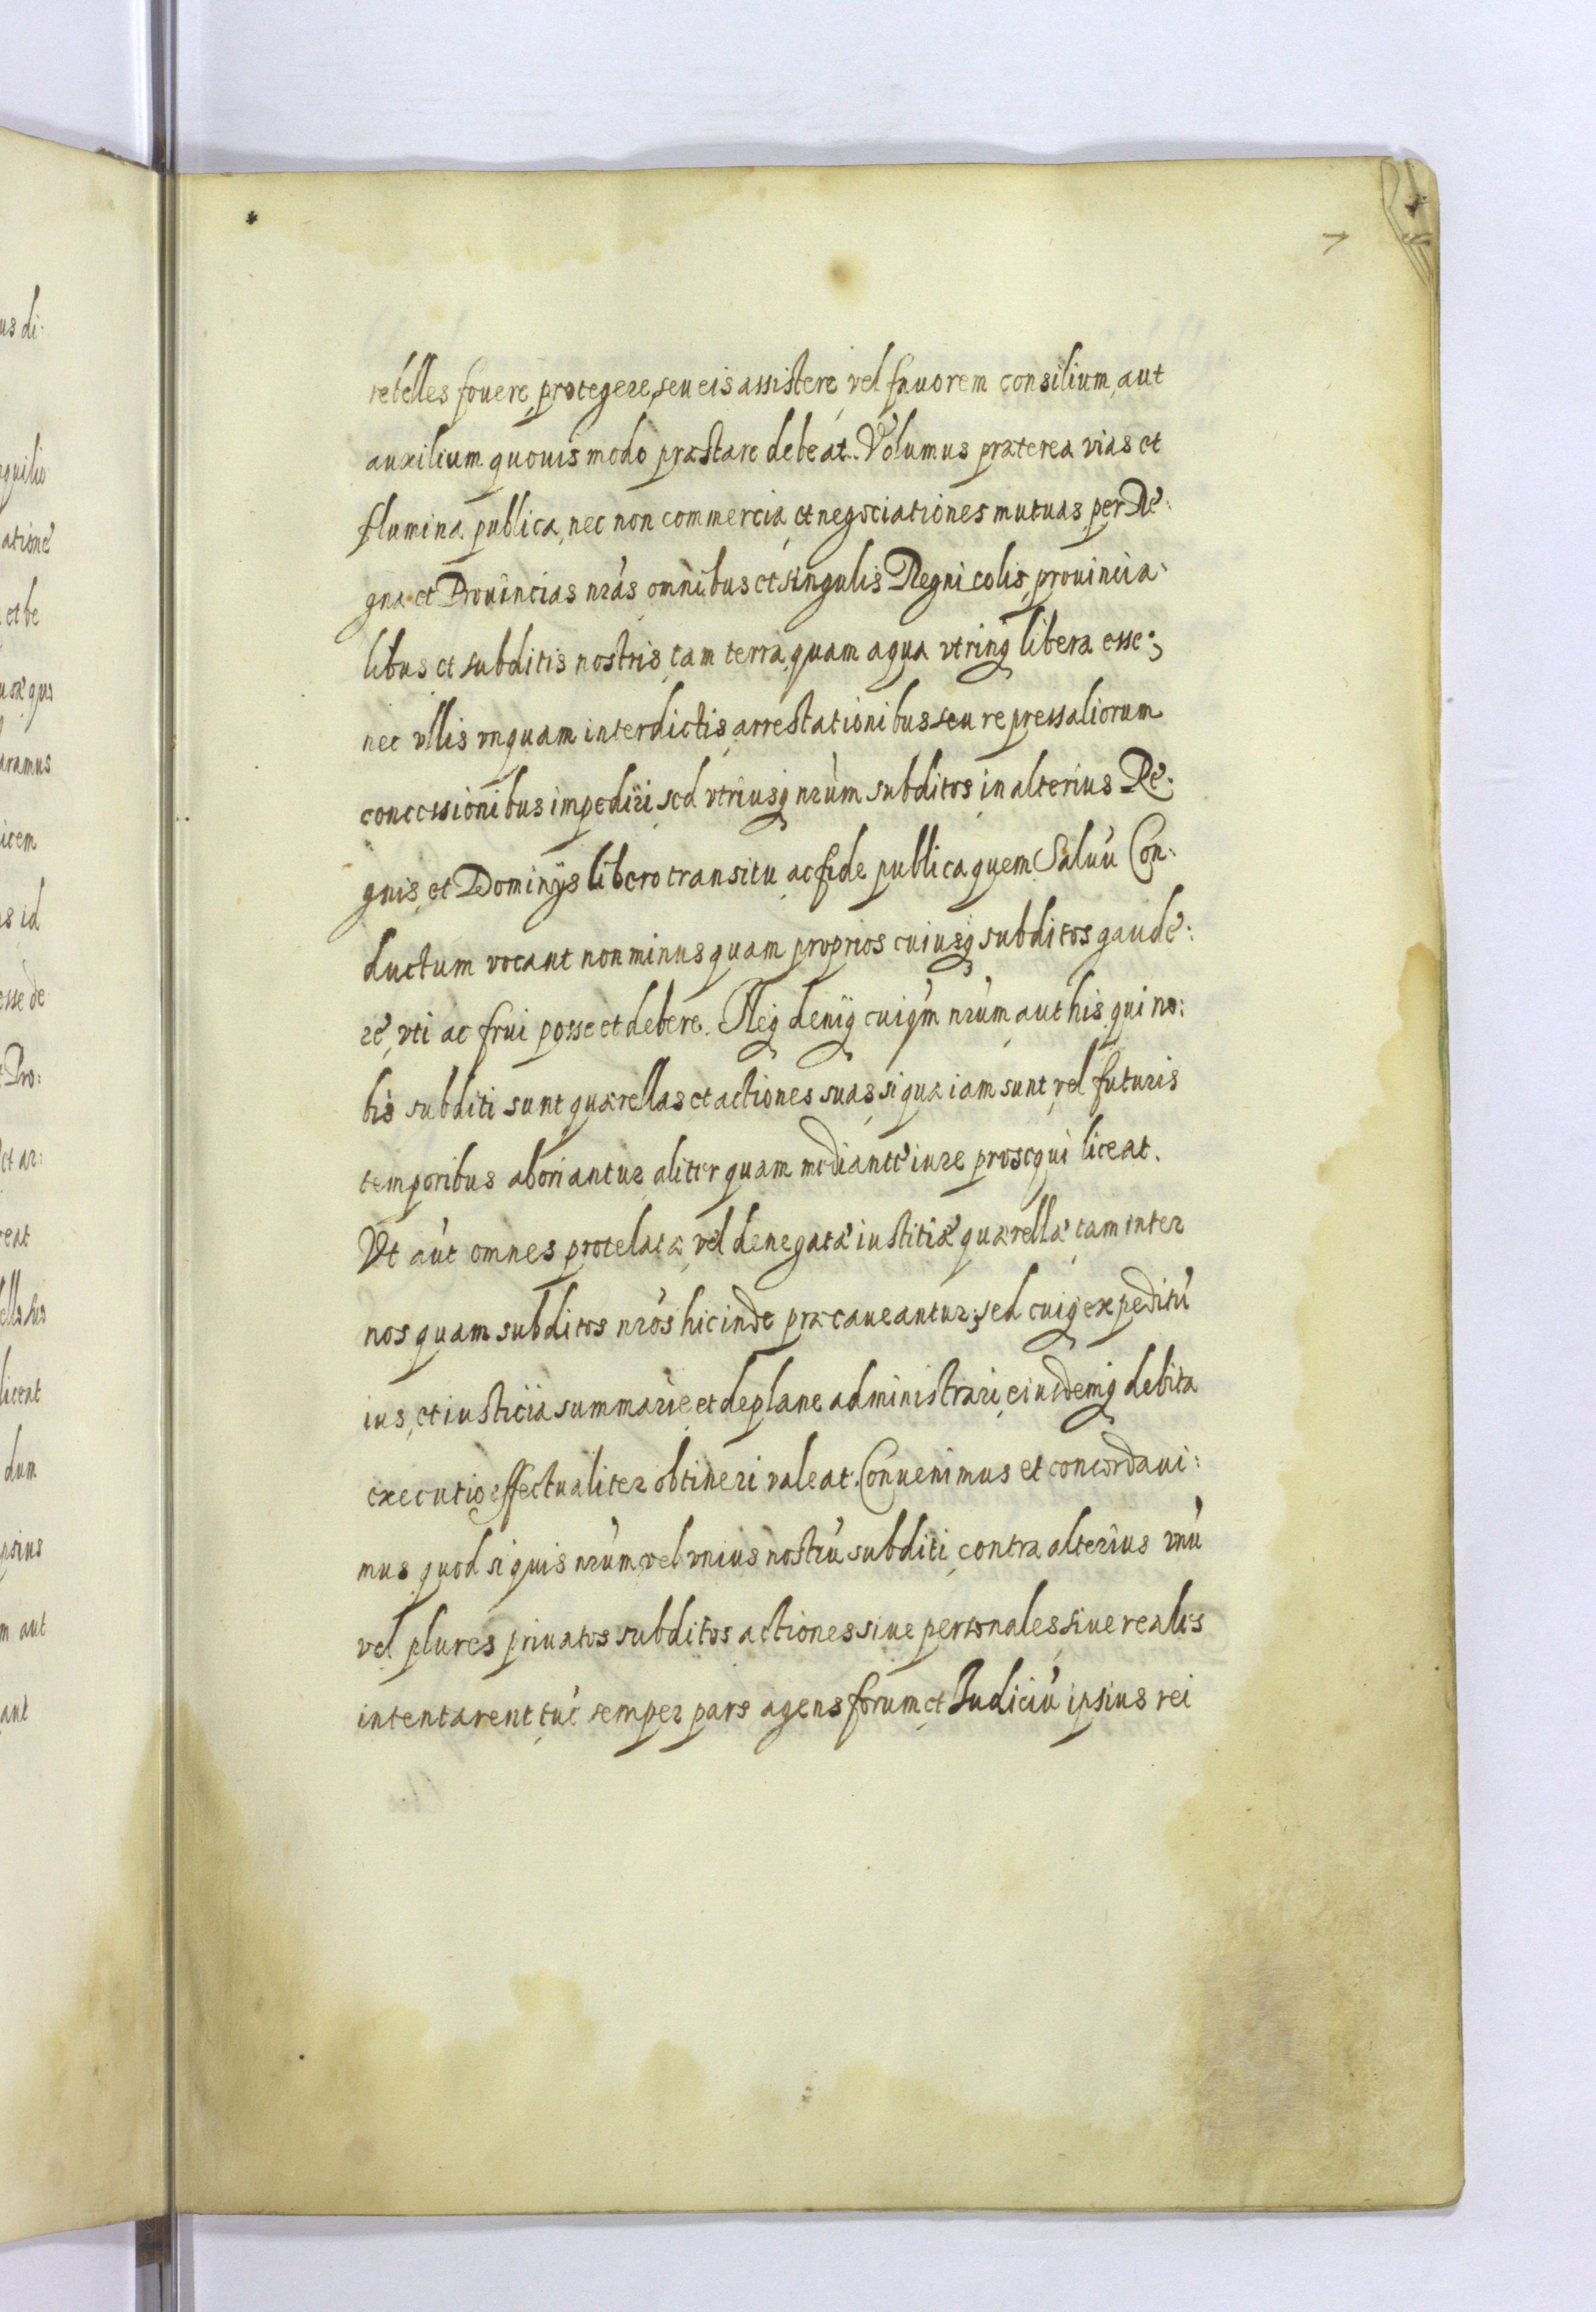 7
rebelles fouere, protegere, seu eis assistere, vel fauorem consilium, aut
auxilium quouis modo præstare debeat. Volumus præterea vias et
flumina publica, nec non commercia, et negociationes mutuas, per Re:
gna et Prouincias nr̃as omnibus et singulis Regnicolis, prouincia:
libus et subditis nostris, tam terra, quam aqua vtrinq́ libera esse;
nec vllis vnquam interdictis, arrestationibus seu repressaliorum
concessionibus impediri, sed vtriusq́ nr̃um subditos, in alterius Re:
gnis, et Dominijs libero transitu, ac fide publica quem Saluũ Con:
ductum vocant non minus quam proprios cuiusq́ subditos gaude:
re, vti ac frui posse et debere. Neq́ deniq́ cuiq̃m nr̃um, aut his, qui no:
bis subditi sunt quærellas et actiones suas, si qua iam sunt, vel futuris
temporibus aboriantur, aliter quam mediante iure prosequi liceat.
Vt aũt omnes protelatæ, vel denegatæ iustitiæ quærellæ, tam inter
nos quam subditos nr̃os hicinde præcaueantur; sed cuiq́ expeditũ
ius, et iusticia summarie, et de plane administrari, eiusdemq́ debita
executio effectualiter obtineri valeat. Conuenimus et concordaui:
mus quod si quis nr̃um, vel vnius nostrũ subditi, contra alterius vnũ
vel plures priuatos subditos actiones siue personales, siue reales
intentarent, tũc semper pars agens forum et Judiciũ ipsius rei